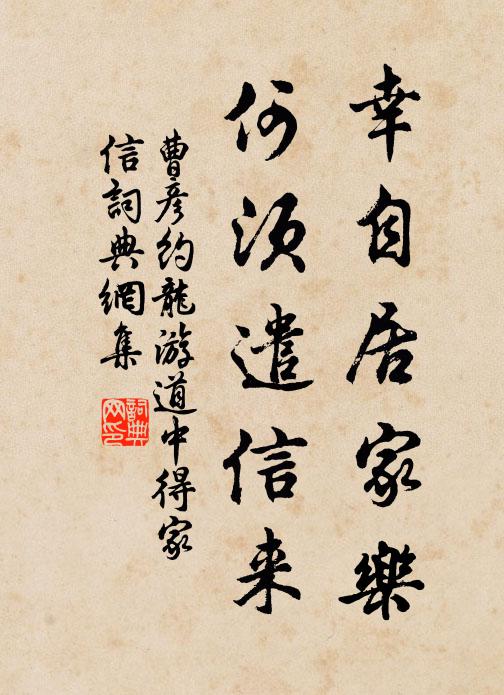 幸自居家樂
何須遣信来
曹彦約龍游道中得家
信詞典網集
詞典
网印